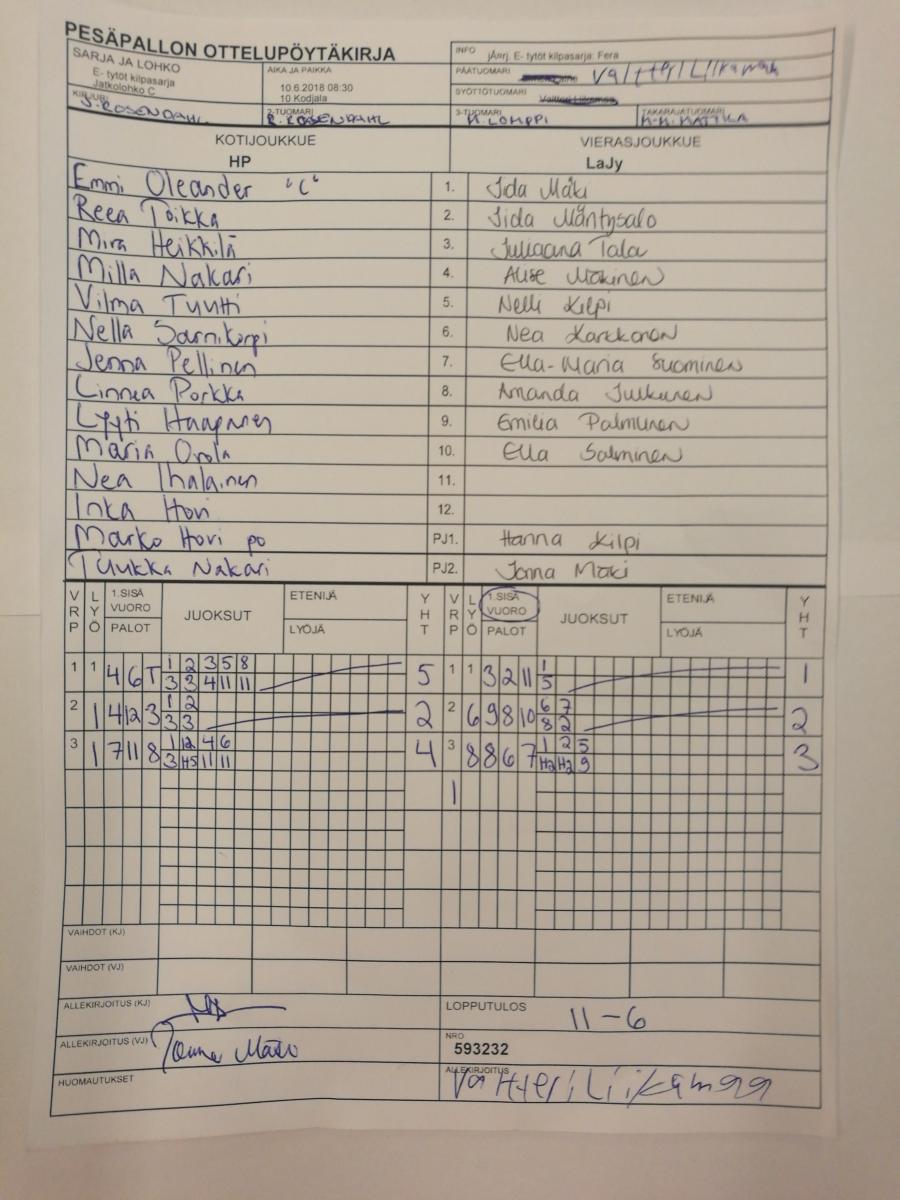 PESÄPALLON OTTELUPÖYTÄKIRJA
SARJA JA LOHKO
E- tytöt kilpasarja
Jatkolohko C
AIKA JA PAIKKA
10.6.2018 08:30
10 Kodjala
INFO
jÄrrj. E- tytöt kilpasarja: Fera
PÄÄTUOMARI Valtteri Liikamaa
SYÖTTÖTUOMARI
KIRJURI
J. ROSENDAHL
2-TUOMARI
R. ROSENDAHL
3-TUOMARI
TAKARAJATUOMARI
KOTIJOUKKUE
HP
VIERASJOUKKUE
LaJy
Emmi Oleander "C" 1. Iida Mäki
Reea Toikka 2. Iida Mäntysalo
Mira Heikkilä 3. Juliaana Tala
Milla Nakari 4. Alise Mäkinen
Vilma Tuutti 5. Nelli Kilpi
Nella Sarnikorpi 6. Nea Karkkonen
Jenna Pellinen 7. Ella-Maria Suominen
Linnea Porkka 8. Amanda Julkunen
Lyyti Haapanen 9. Emilia Palmunen
Maria Orola 10. Ella Salminen
Nea Ihalainen 11.
Inka Hovi 12.
Marko Hovi po PJ1. Hanna Kilpi
Tuukka Nakari PJ2. Jonna Mäki
VRP LYÖ 1.SISÄ VUORO PALOT JUOKSUT ETENIJÄ LYÖJÄ YHT VRP LYÖ 1.SISÄ VUORO PALOT JUOKSUT ETENIJÄ LYÖJÄ YHT
1 1 4 6 T 1 2 3 5 8 5 1 1 3 2 11 1 1
3 3 4 11 11 5
2 1 4 12 3 1 2 2 2 6 9 8 10 6 7 2
3 3 8 2
3 1 7 11 8 1 12 4 6 4 3 8 8 6 7 1 2 5 3
3 H5 11 11 H2 H2 9
1
VAIHDOT (KJ)
VAIHDOT (VJ)
ALLEKIRJOITUS (KJ)
LOPPUTULOS 11-6
ALLEKIRJOITUS (VJ) Jonna Mäki
NRO
593232
HUOMAUTUKSET
ALLEKIRJOITUS
Valtteri Liikamaa